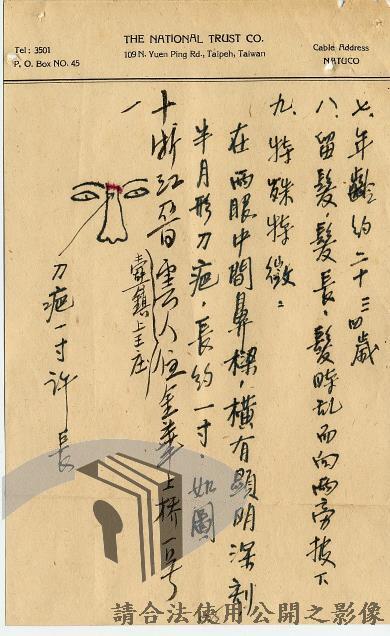 Tel: 3501
P. O. Box NO. 45
THE NATIONAL TRUST CO.
109 N. Yuen Ping Rd., Taipeh, Taiwan
Cable Address
NATUCO
七、年齡約二十三四歲
八、留髮，髮長，髮時乱而向兩旁披下
九、特殊特徵：
在兩眼中間鼻樑，橫有顯明深刻
半月形刀疤，長約一寸．如圖
十浙江縉雲人住金華上橋一号
壺鎮上王庄
刀疤一寸許長
請合法使用公開之影像